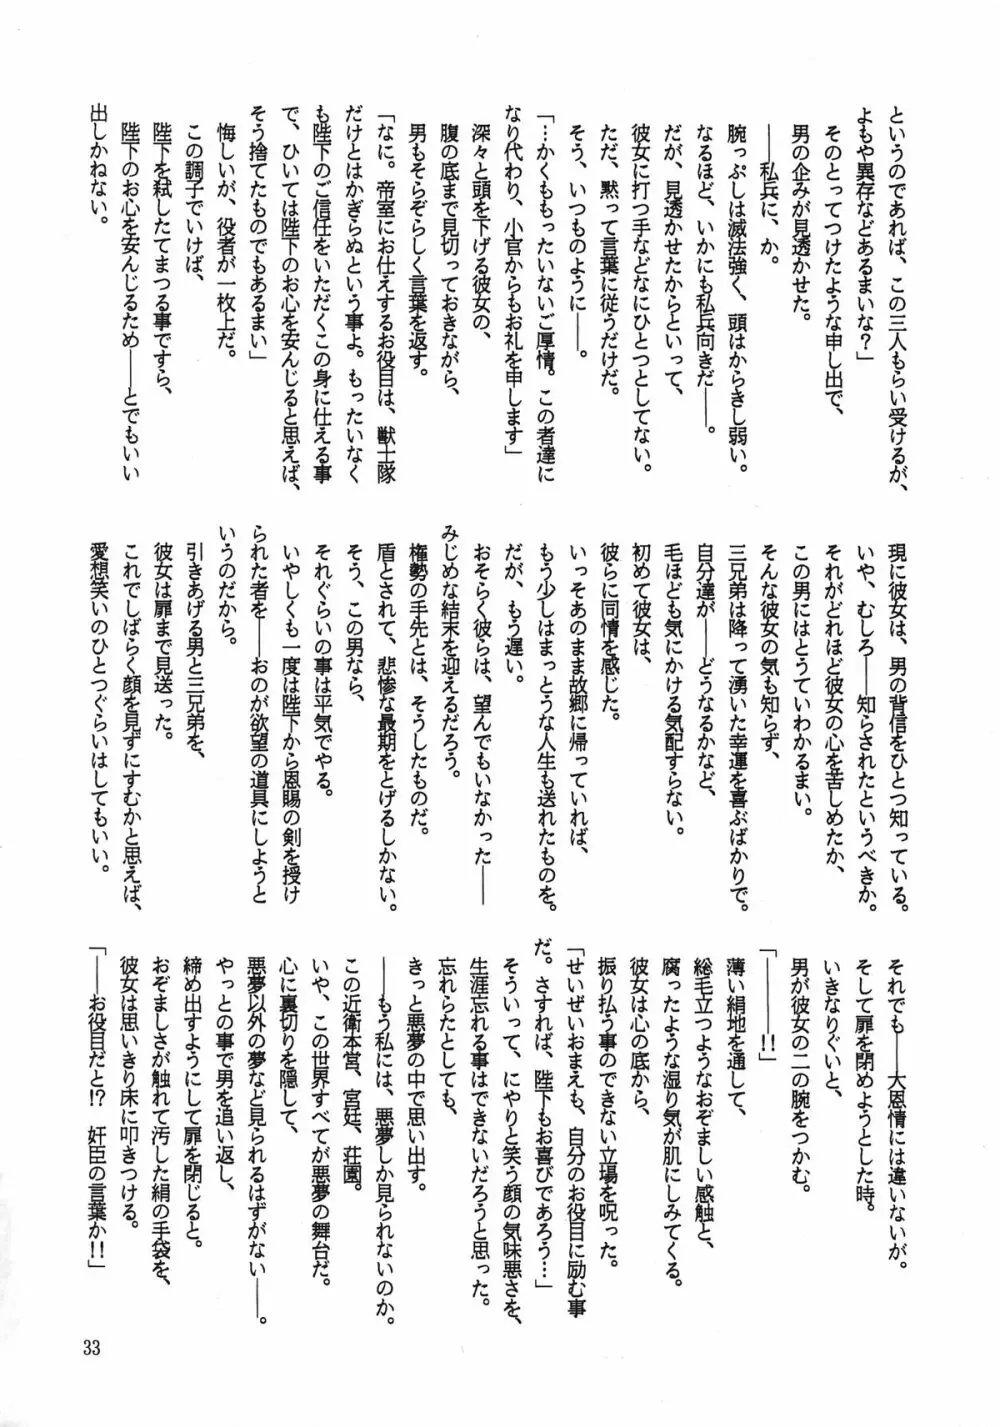 というのであれば、この三人もらい受けるが、
よもや異存などあるまいな？」
そのとってつけたような申し出で、
男の企みが見透かせた。
――私兵に、か。
腕っぷしは滅法強く、頭はからきし弱い。
なるほど、いかにも私兵向きだ――。
だが、見透かせたからといって、
彼女に打つ手などなにひとつとしてない。
ただ、黙って言葉に従うだけだ。
そう、いつものように――。
「…かくももったいないご厚情。この者達に
なり代わり、小官からもお礼を申します」
深々と頭を下げる彼女の、
腹の底まで見切っておきながら、
男もそらぞらしく言葉を返す。
「なに。帝室にお仕えするお役目は、獣士隊
だけとはかぎらぬという事よ。もったいなく
も陛下のご信任をいただくこの身に仕える事
で、ひいては陛下のお心を安んじると思えば、
そう捨てたものでもあるまい」
悔しいが、役者が一枚上だ。
この調子でいけば、
陛下を弑したてまつる事ですら、
陛下のお心を安んじるため――とでもいい
出しかねない。
現に彼女は、男の背信をひとつ知っている。
いや、むしろ――知らされたというべきか。
それがどれほど彼女の心を苦しめたか、
この男にはとうていわかるまい。
そんな彼女の気も知らず、
三兄弟は降って湧いた幸運を喜ぶばかりで。
自分達が――どうなるかなど、
毛ほども気にかける気配すらない。
初めて彼女は、
彼らに同情を感じた。
いっそあのまま故郷に帰っていれば、
もう少しはまっとうな人生も送れたものを。
だが、もう遅い。
おそらく彼らは、望んでもいなかった――
みじめな結末を迎えるだろう。
権勢の手先とは、そうしたものだ。
盾とされて、悲惨な最期をとげるしかない。
そう、この男なら、
それぐらいの事は平気でやる。
いやしくも一度は陛下から恩賜の剣を授け
られた者を――おのが欲望の道具にしようと
いうのだから。
引きあげる男と三兄弟を、
彼女は扉まで見送った。
これでしばらく顔を見ずにすむかと思えば、
愛想笑いのひとつぐらいはしてもいい。
それでも――大恩情には違いないが。
そして扉を閉めようとした時。
いきなりぐいと、
男が彼女の二の腕をつかむ。
「――――!!」
薄い絹地を通して、
総毛立つようなおぞましい感触と、
腐ったような湿り気が肌にしみてくる。
彼女は心の底から、
振り払う事のできない立場を呪った。
「せいぜいおまえも、自分のお役目に励む事
だ。さすれば、陛下もお喜びであろう…」
そういって、にやりと笑う顔の気味悪さを、
生涯忘れる事はできないだろうと思った。
忘れらたとしても、
きっと悪夢の中で思い出す。
――もう私には、悪夢しか見られないのか。
この近衛本宮、宮廷、荘園。
いや、この世界すべてが悪夢の舞台だ。
心に裏切りを隠して、
悪夢以外の夢など見られるはずがない――。
やっとの事で男を追い返し、
締め出すようにして扉を閉じると。
おぞましさが触れて汚した絹の手袋を、
彼女は思いきり床に叩きつける。
「――お役目だと!?　奸臣の言葉か!!」
33